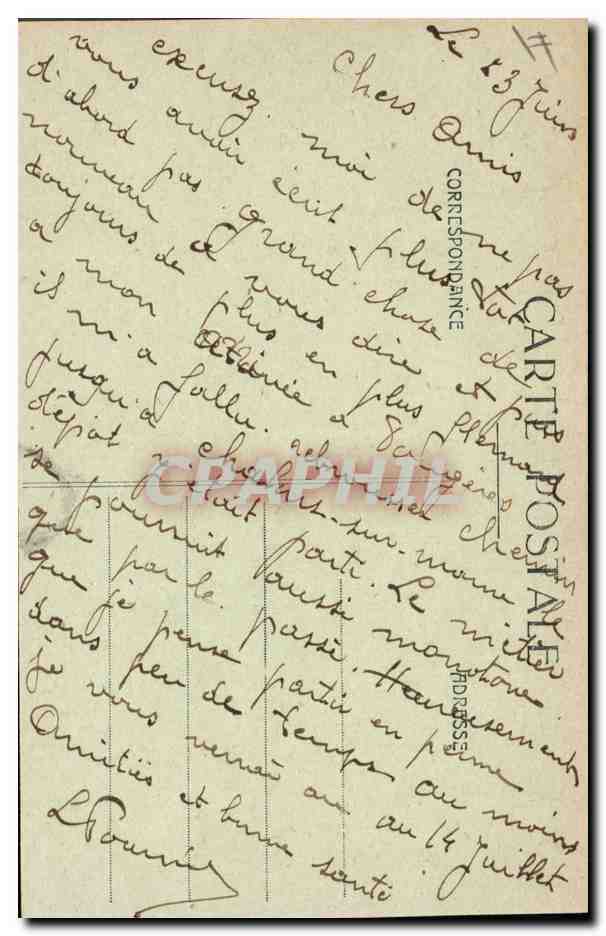 Le 23 Juin
Chers Amis
excusez moi de ne pas
vous avoir écrit plus tôt
d'abord pas grand chose de
nouveau a vous dire et puis
toujours de plus en plus flemard
a mon arrivée a Fougères
il m'a fallu rebrousser chemin
jusqu'à chalons-sur-marne le
dépot était parti. Le métier
se poursuit aussi monotone
que par le passé. Heureusement
que je pense partir en perme
dans peu de temps au moins
je vous verrai au 14 Juillet
Amitiés et bonne santé
CARTE POSTALE
CORRESPONDANCE
ADRESSE
CPAPHIL